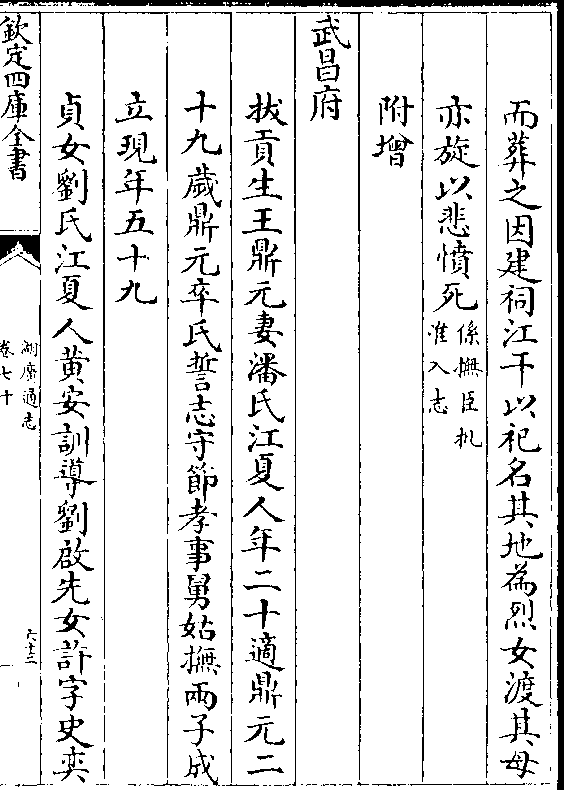 而葬之因建祠江干以祀名其地為烈女渡其母
亦旋以悲憤死係撫臣批准入志
附增
武昌府
拔貢生王鼎元妻潘氏江夏人年二十適鼎元二
十九歲鼎元卒氏誓志守節孝事舅姑撫兩子成
立現年五十九
貞女劉氏江夏人黄安訓導劉啟先女許字史奕
欽定四庫全書
湖廣通志
卷七十